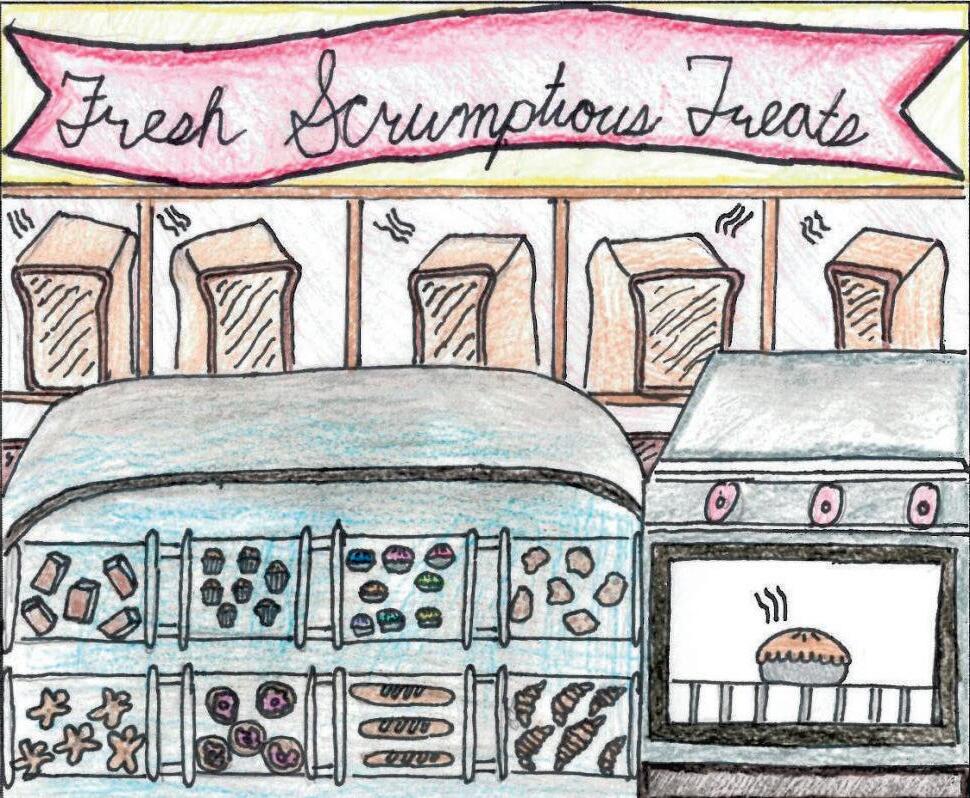 Fresh Scrumptious Treats